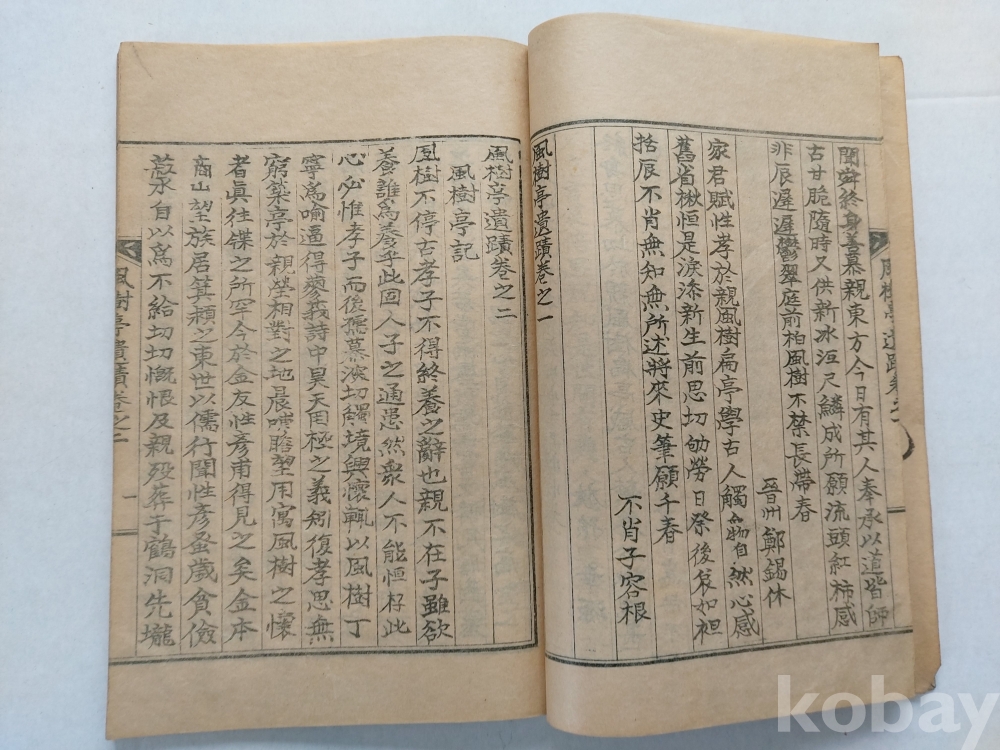 聞舜終身善慕親東方今日有其人奉承以道皆師
古甘脆隨時又供新冰沍尺鱗成所願流頭紅柿感
非辰遲遲鬱翠庭前柏風樹不禁長帶春
晉州鄭錫休
家君賦性孝於親風樹扁亭學古人觸物自然心感
舊省楸恒是淚滌新生前思切劬勞日祭後哀如袒
括辰不肖無知無所述將來史筆願千春
不肖子容根
風樹亭遺蹟卷之一
風樹亭遺蹟卷之二
風樹亭記
風樹不停古孝子不得終養之辭也親不在子雖欲
養誰爲養乎此固人子之通患然衆人不能恒存此
心必惟孝子而後慕深切觸境興懷輒以風樹丁
寧爲喻逼得蓼莪詩中昊天罔極之義矧復孝思無
窮築亭於親塋相對之地晨晡瞻望用寓風樹之懷
者眞往牒之所罕今於金友性彦甫得見之矣金本
商山望族居箕類之東世以儒行聞性彦蚤歲貧儉
菽水自以爲不給切切慨恨及親歿葬于鶴洞先壠
風樹亭遺蹟卷之二
一
kobay